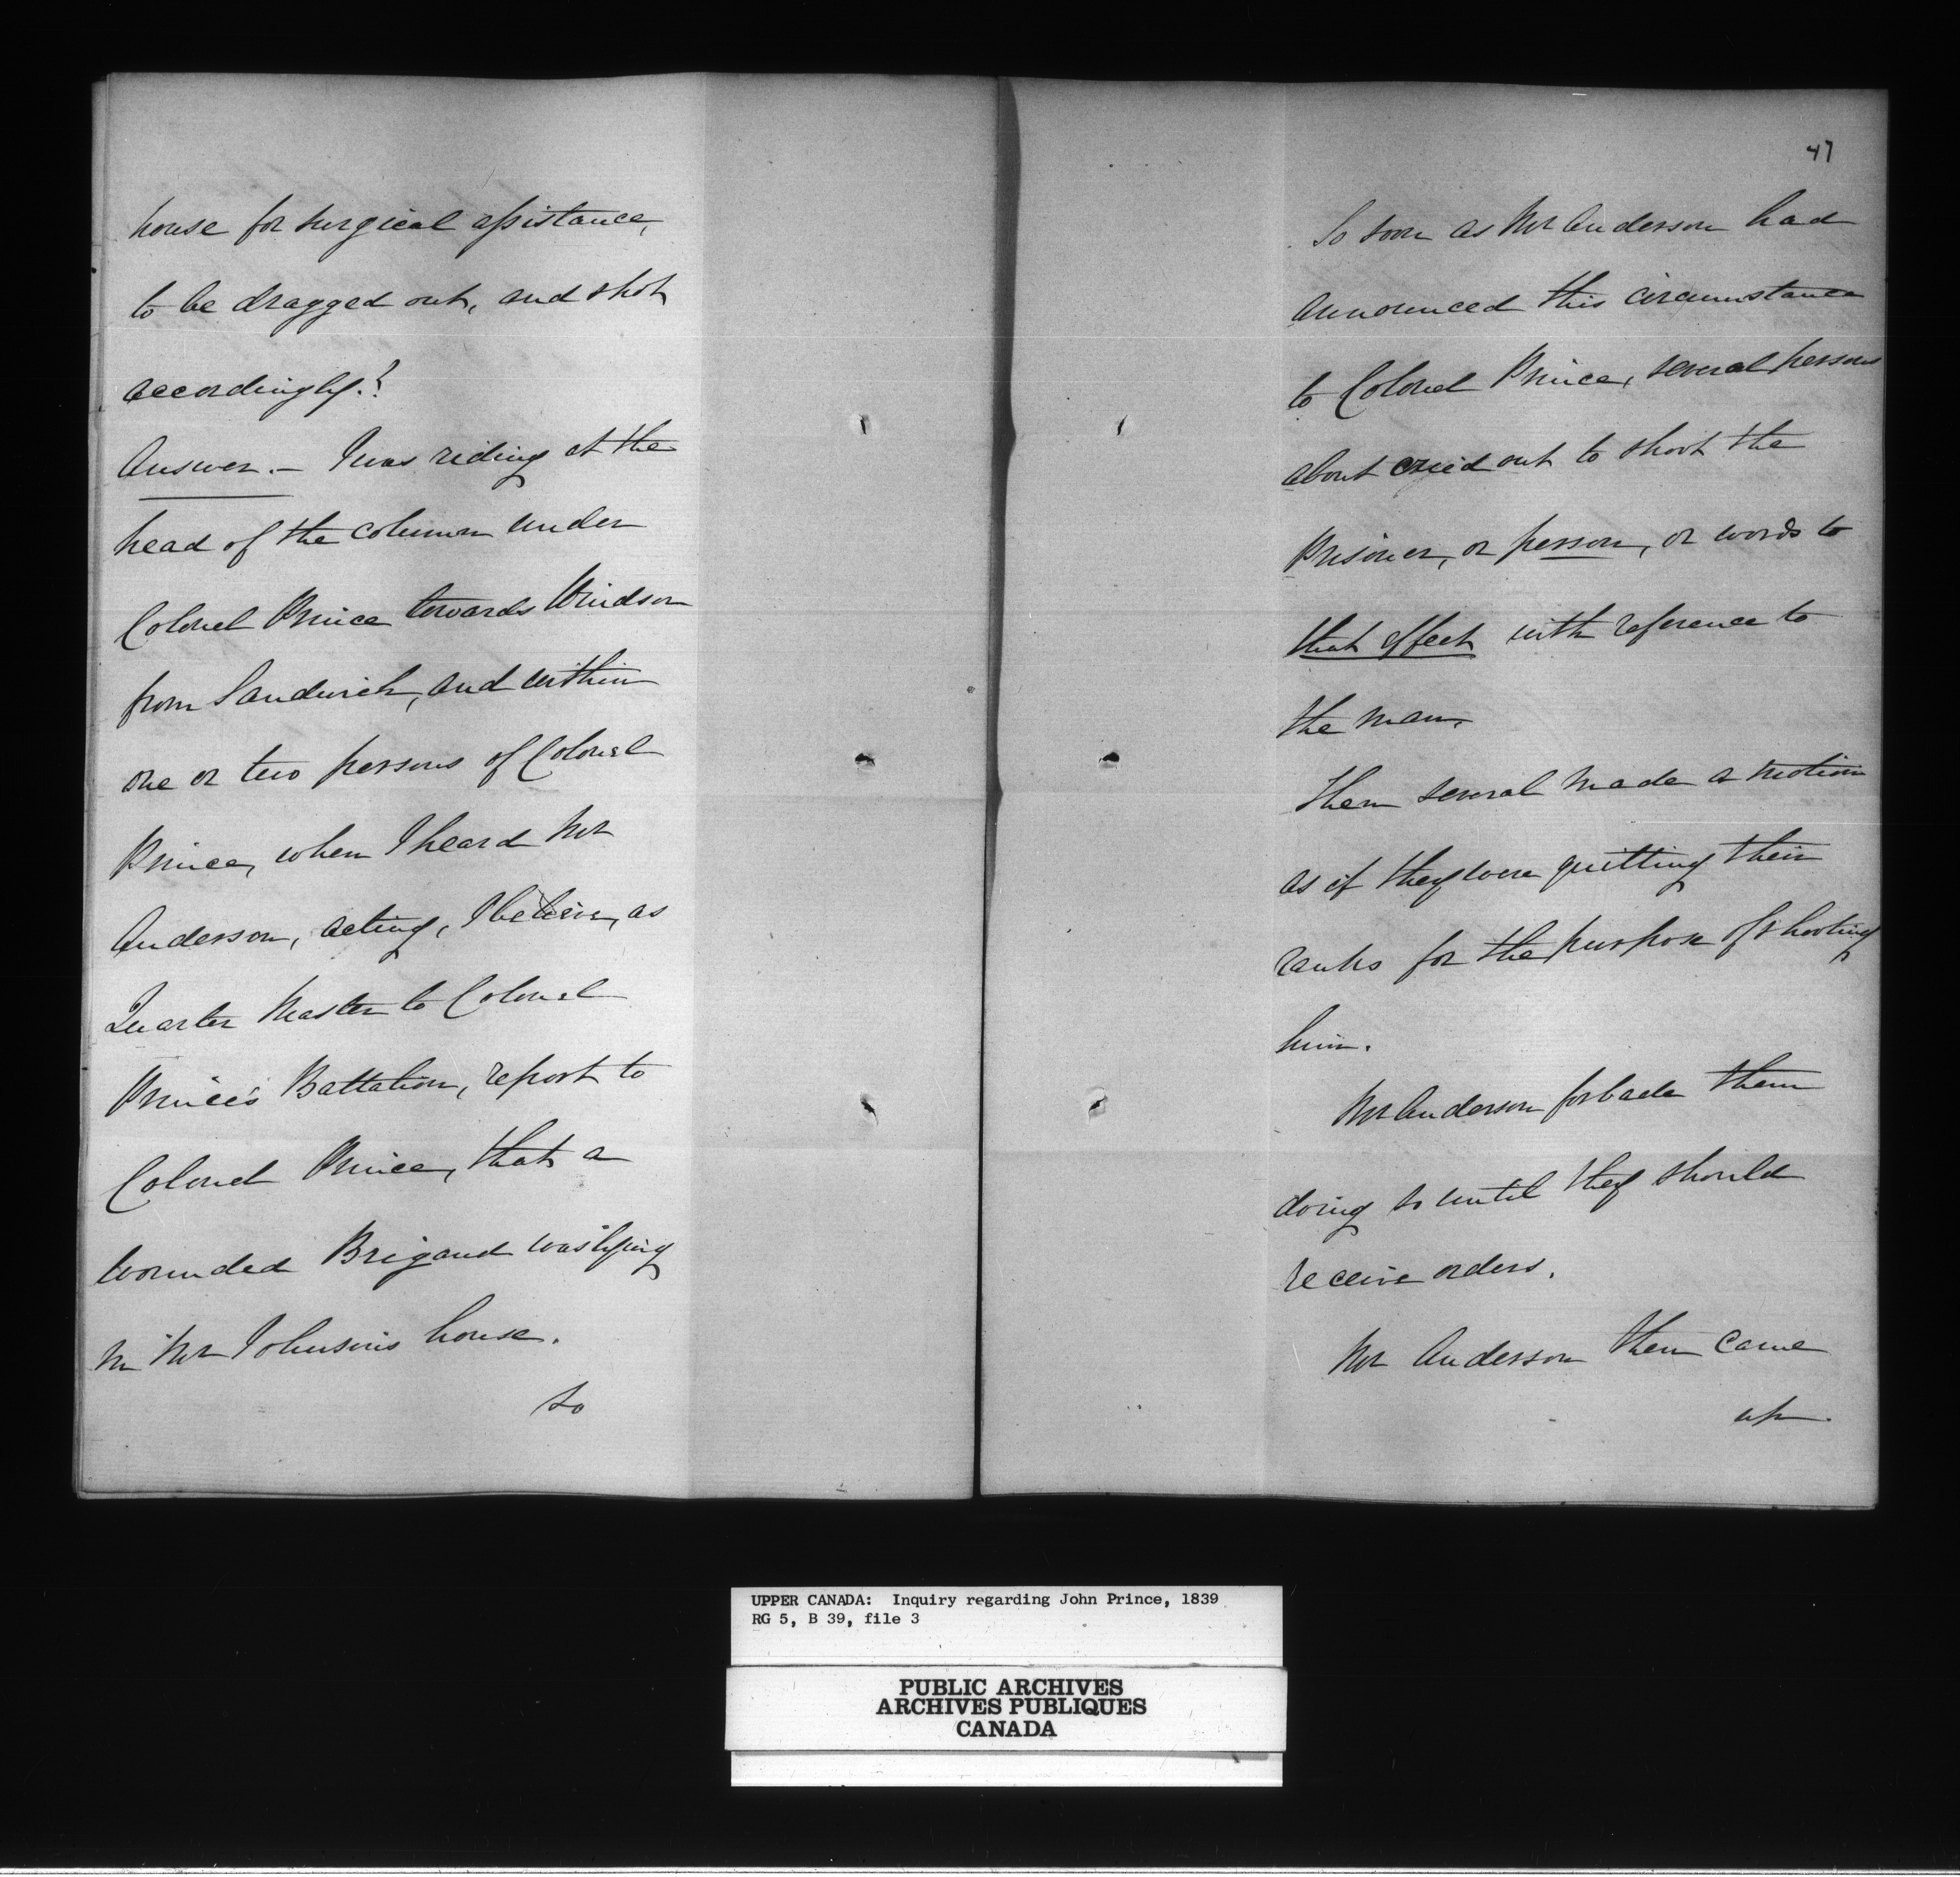 house for surgical assistance,
to be dragged out, and shot
accordingly.?
Answer. – I was riding at the
head of the column under
Colonel Prince towards Windsor
from Sandwich, and within
one or two persons of Colonel
Prince, when I heard Mr
Anderson, acting, I believe, as
Quarter Master to Colonel
Prince's Battalion, report to
Colonel Prince, that a
wounded Brigand was lying
in Mr Johnson's house.
So
47
So soon as Mr Anderson had
announced this circumstance
to Colonel Prince, several persons
about cried out to shoot the
Prisoner, or person, or words to
that effect with reference to
the man.
Then several made a motion
as if they were quitting their
ranks for the purpose of shooting
him.
Mr Anderson forbade them
doing so until they should
receive orders.
Mr Anderson then came
up
UPPER CANADA: Inquiry regarding John Prince, 1839
RG 5, B 39, file 3
PUBLIC ARCHIVES
ARCHIVES PUBLIQUES
CANADA